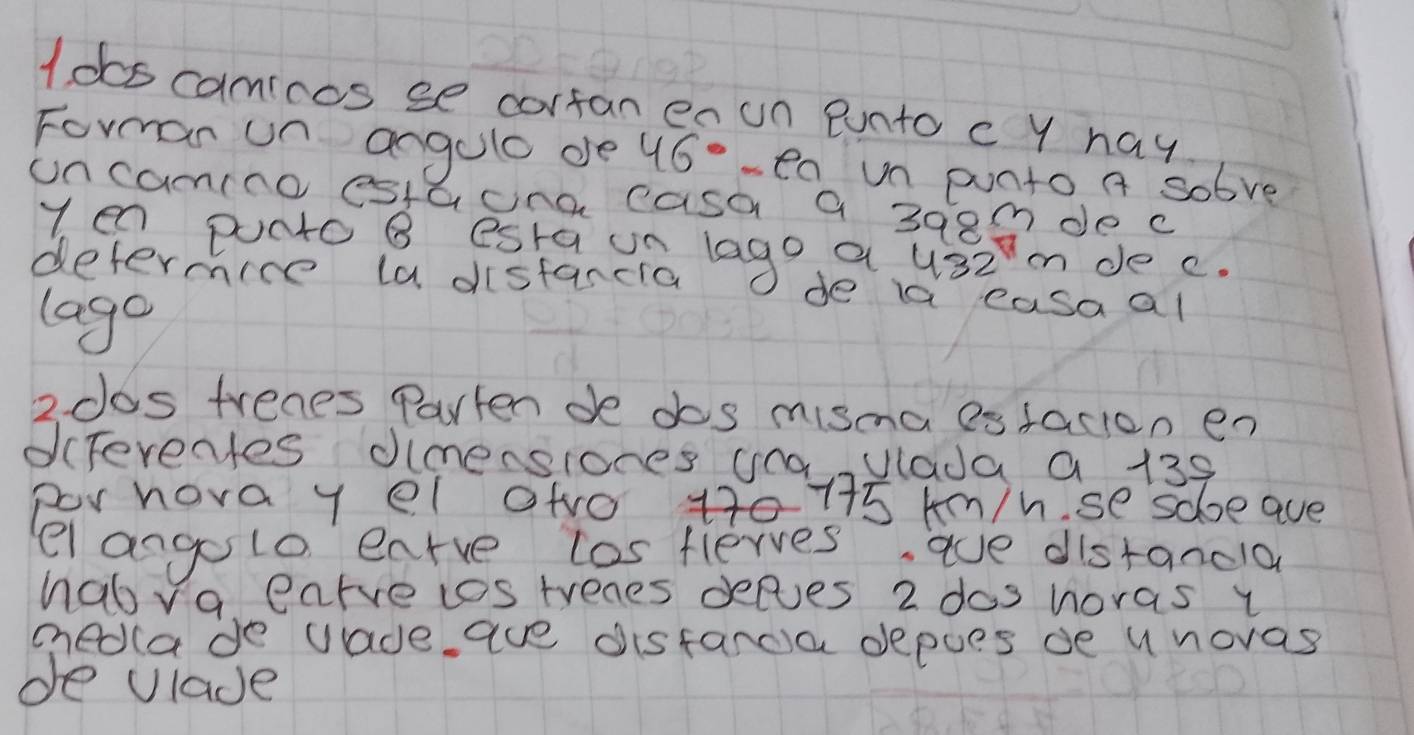 1. dos caminos se cortan en un Punto c y hay
Forman un angulo de 46° en un punto A sobre
un camino esta una casa a 398 m de c
y en punto B esta un lago a 432 m de c.
determine la distancia de la casa al
lago
2. dos trenes Parten de dos misma estacion en
diferentes dimensiones una viaja a 139
por hora y el otro 170 175 km/h. se sabe que
el angulo entre los fierres . que distancia
habra entre los trenes depues 2 dos horas y
media de viaje. que distancia depues de 4 horas
de viaje